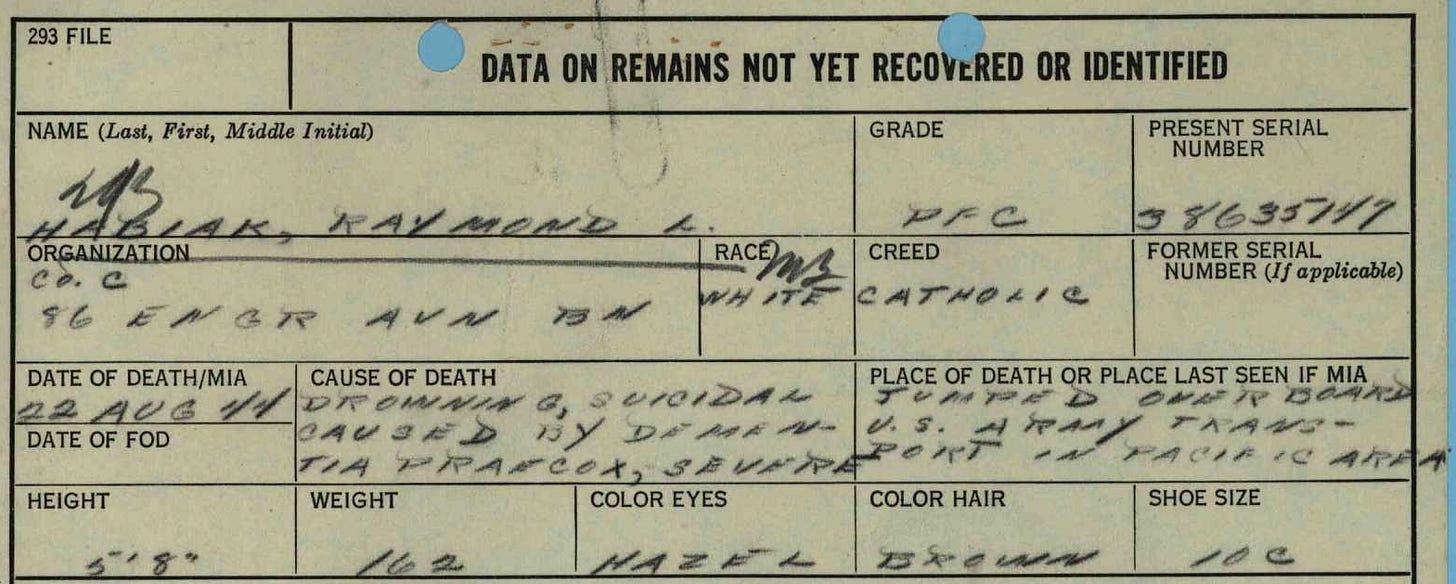 293 FILE
DATA ON REMAINS NOT YET RECOVERED OR IDENTIFIED
NAME (Last, First, Middle Initial)
HABIAK, RAYMOND L.
GRADE
PFC
PRESENT SERIAL
NUMBER
38635147
ORGANIZATION
CO. C
86 ENGR AVN BN
RACE
WHITE
CREED
CATHOLIC
FORMER SERIAL
NUMBER (If applicable)
DATE OF DEATH/MIA
22 AUG 44
DATE OF FOD
CAUSE OF DEATH
DROWNING, SUICIDAL
CAUSED BY DEMEN-
TIA PRAECOX, SEVERE
PLACE OF DEATH OR PLACE LAST SEEN IF MIA
JUMPED OVERBOARD
U.S. ARMY TRANS-
PORT IN PACIFIC AREA
HEIGHT
5'8"
WEIGHT
162
COLOR EYES
HAZEL
COLOR HAIR
BROWN
SHOE SIZE
10C